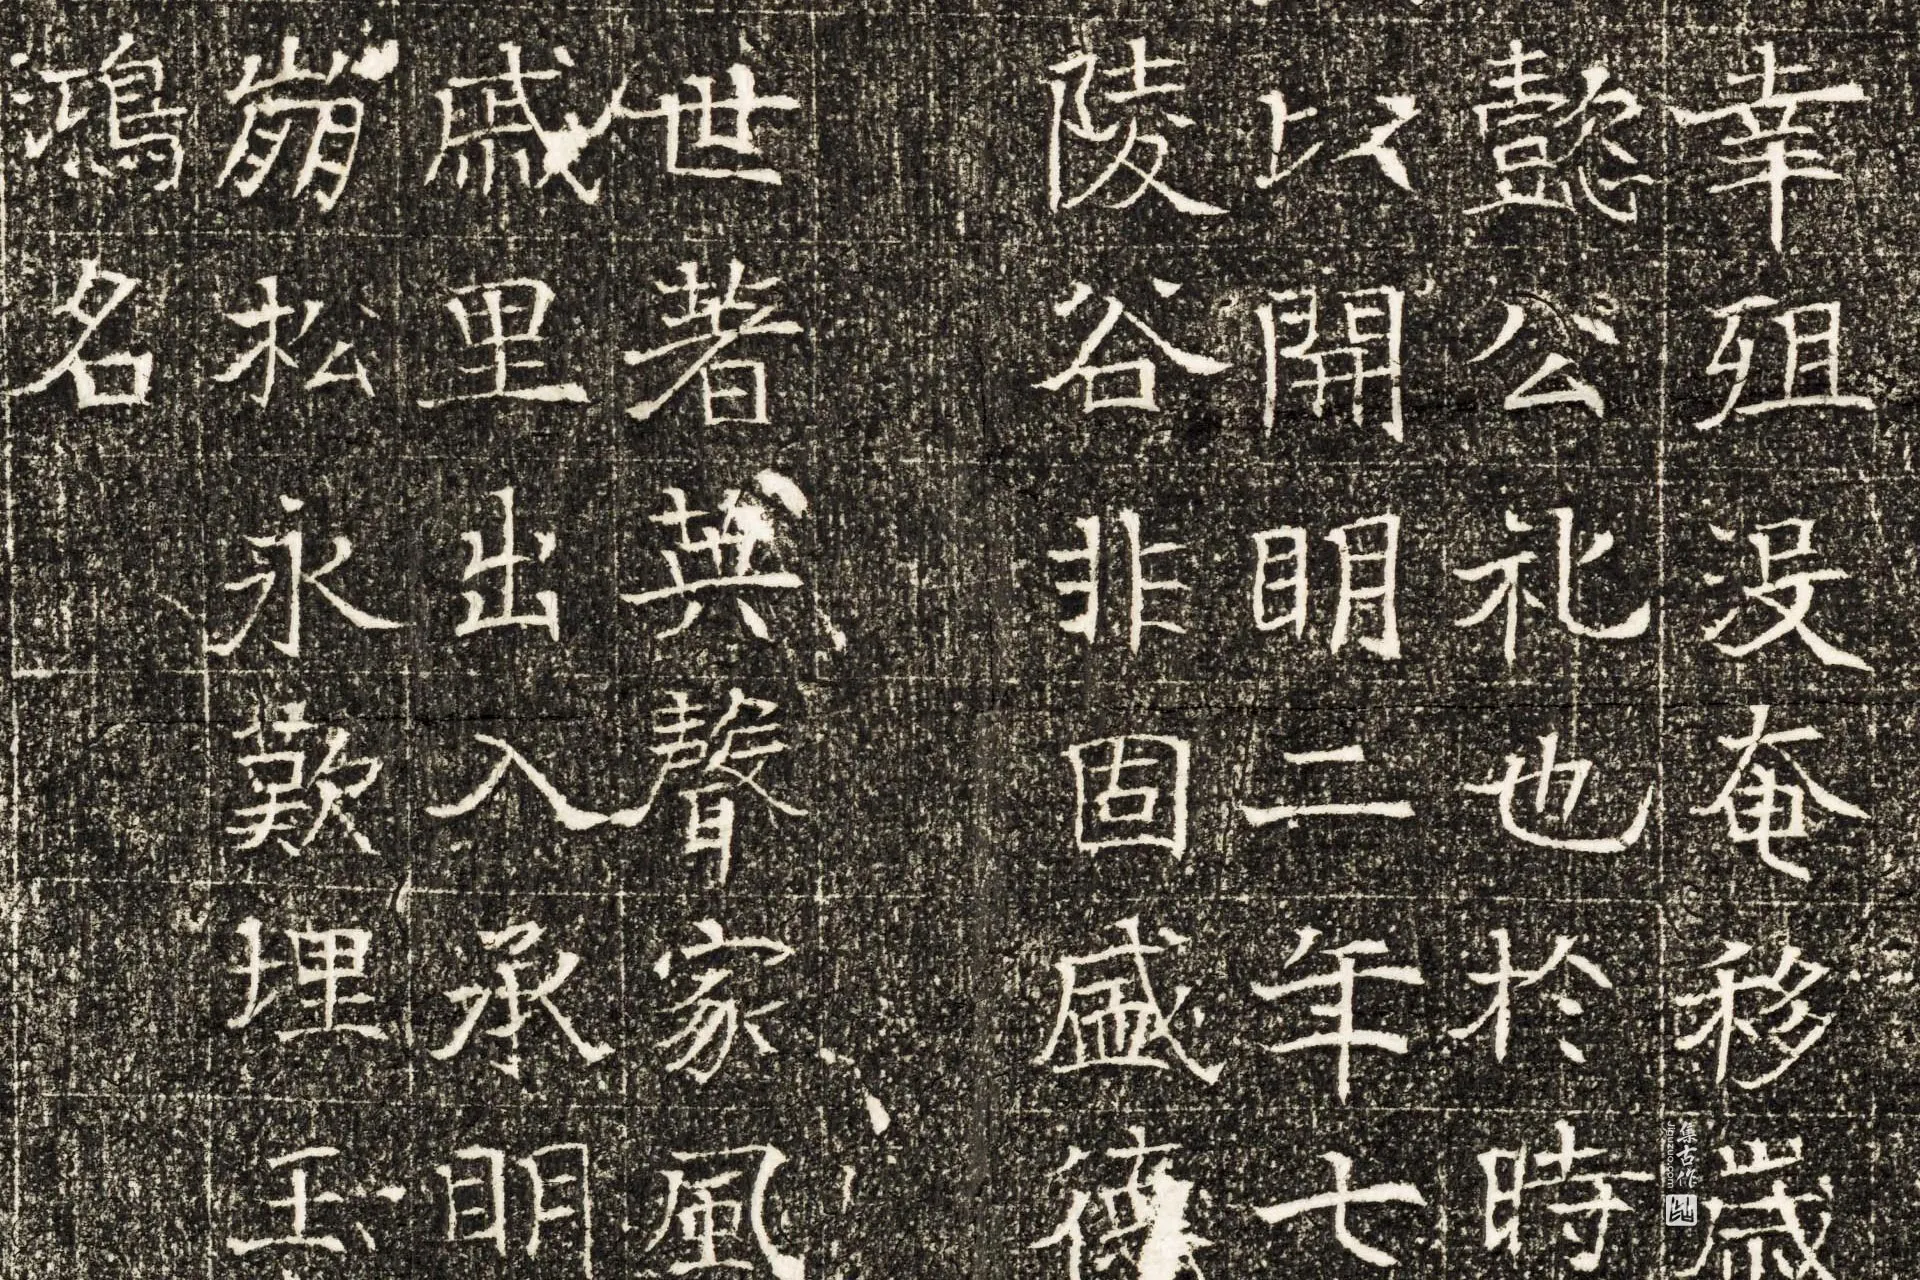 幸殂没奄移歲
懿公礼也於時
以開明二年七
陵谷非固盛德
世著英聲家風
戚里出入承明
崩松永歎埋玉
鴻名
集古作
jiguzuo.com